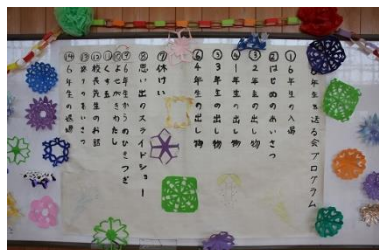 6年生を送る会プログラム
①6年生の入場
②はじめのあいさつ
③2年生の出し物
④1年生の出し物
⑤3年生の出し物
⑥4年生の出し物
⑦休けい
⑧思い出のスライドショー
⑨6年生からのひきつぎ
⑩よせがきわたし
⑪くす玉
⑫校長先生のお話
⑬おわりのあいさつ
⑭6年生の退場